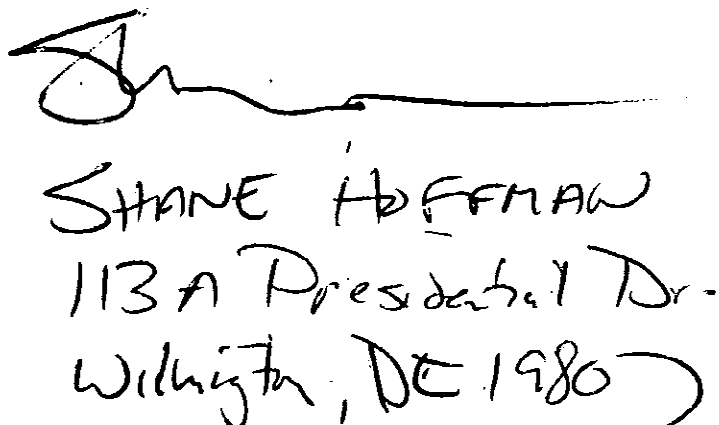 SHANE HOFFMAN
113 A Presidential Dr.
Wilmington, DE 19807